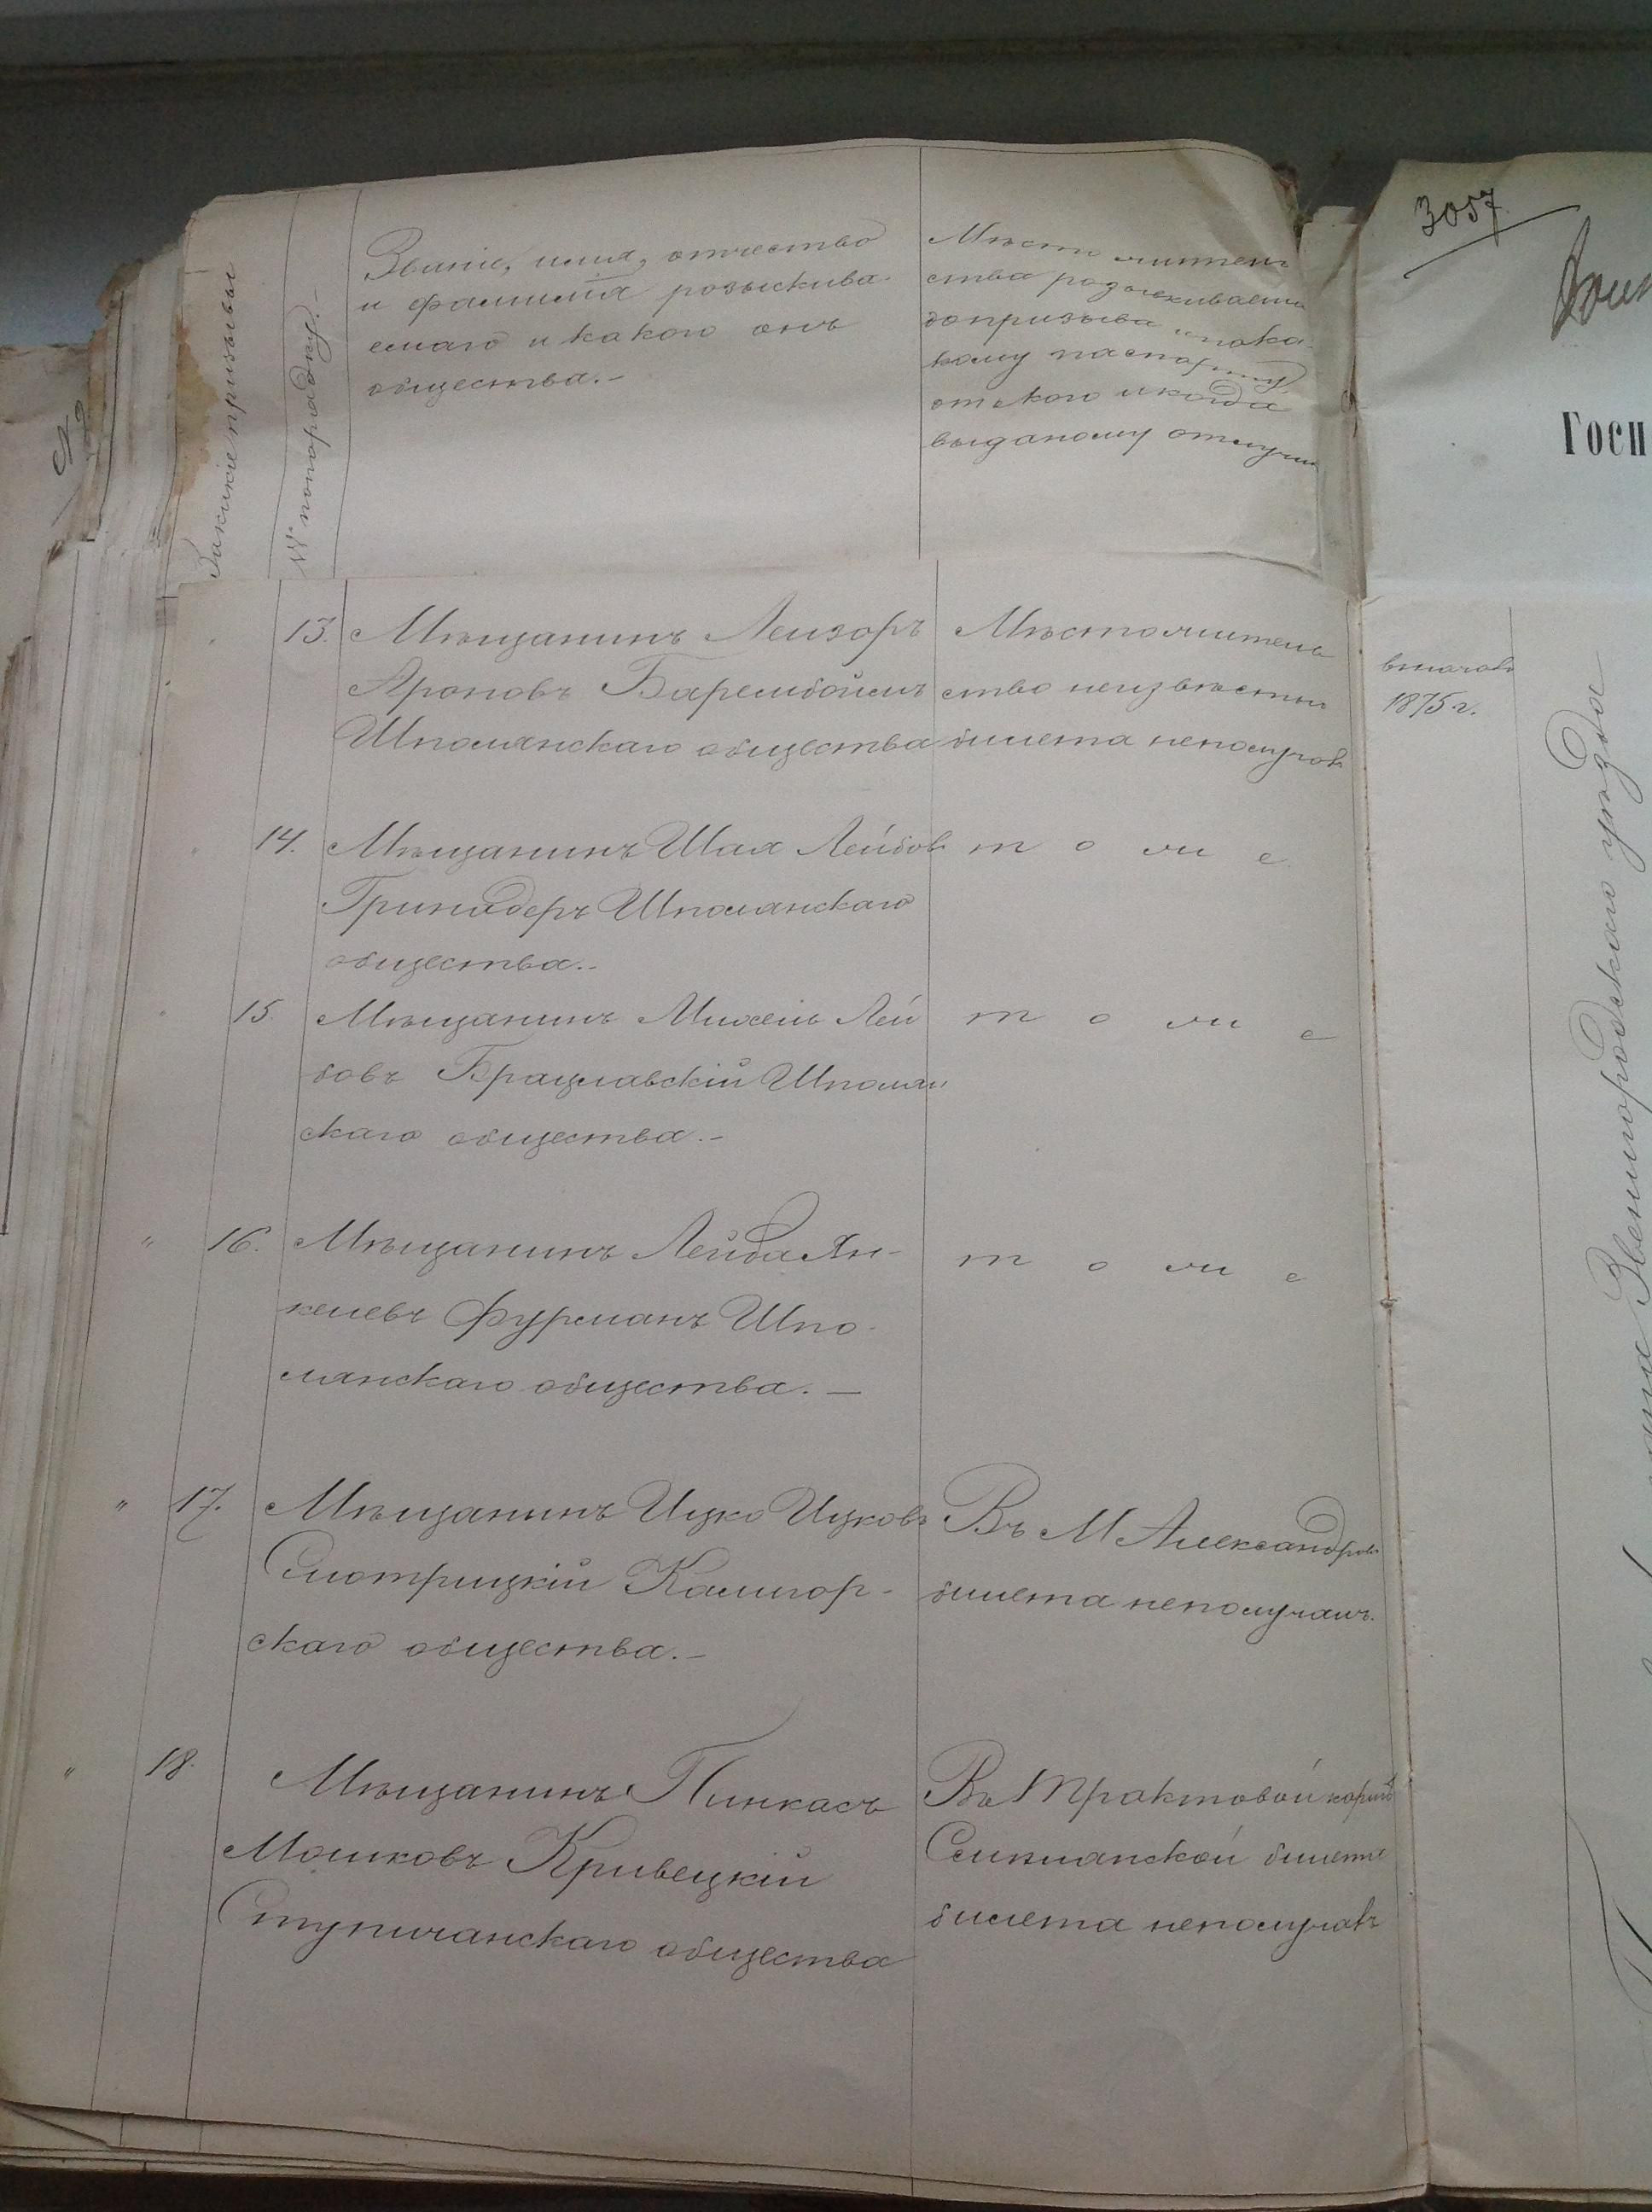 За какие призывы
№ по порядку.-
Званіе, имя, отчество
и фамилія розыскива
емаго и какого онъ
общества.-
Место житель
ства разыскиваема
до призыва и пока
кому паспорту
отъ кого и когда
выданому отлучил
13. Мѣщанинъ Лейзоръ
Ароновъ Барембоймъ
Шполянскаго общества
Мѣсто житель
ство неизвѣстно
билета неполучалъ
14. Мѣщанинъ Шая Лейбов
Гринадеръ Шполянскаго
общества.-
т о ж е
15. Мѣщанинъ Михель Лей
бовъ Брацлавскій Шполян
скаго общества.-
т о ж е
" 16. Мѣщанинъ Лейба Ян-
келевъ Фурманъ Шпо-
лянскаго общества.-
т о ж е
" 17. Мѣщанинъ Ицко Ицковъ
Смотрицкій Калигор-
скаго общества.-
Въ М Александров
билета неполучалъ.
" 18. Мѣщанинъ Пинкасъ
Мошковъ Кривецкій
Ступичанскаго общества
Въ Трактовой
билета неполучалъ
3057
Госп
1875 г.
Звенигородскаго уѣзда